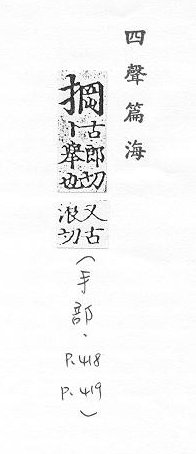 四聲篇海
掆
古郎切
卜舉也
又古
浪切
(手部.
P.418
P.419)